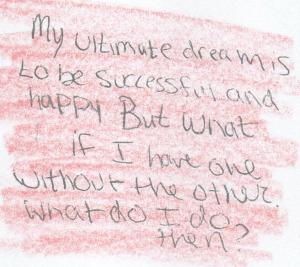 My ultimate dream is
to be successful and
happy But what
if I have one
without the other.
what do I do
then?